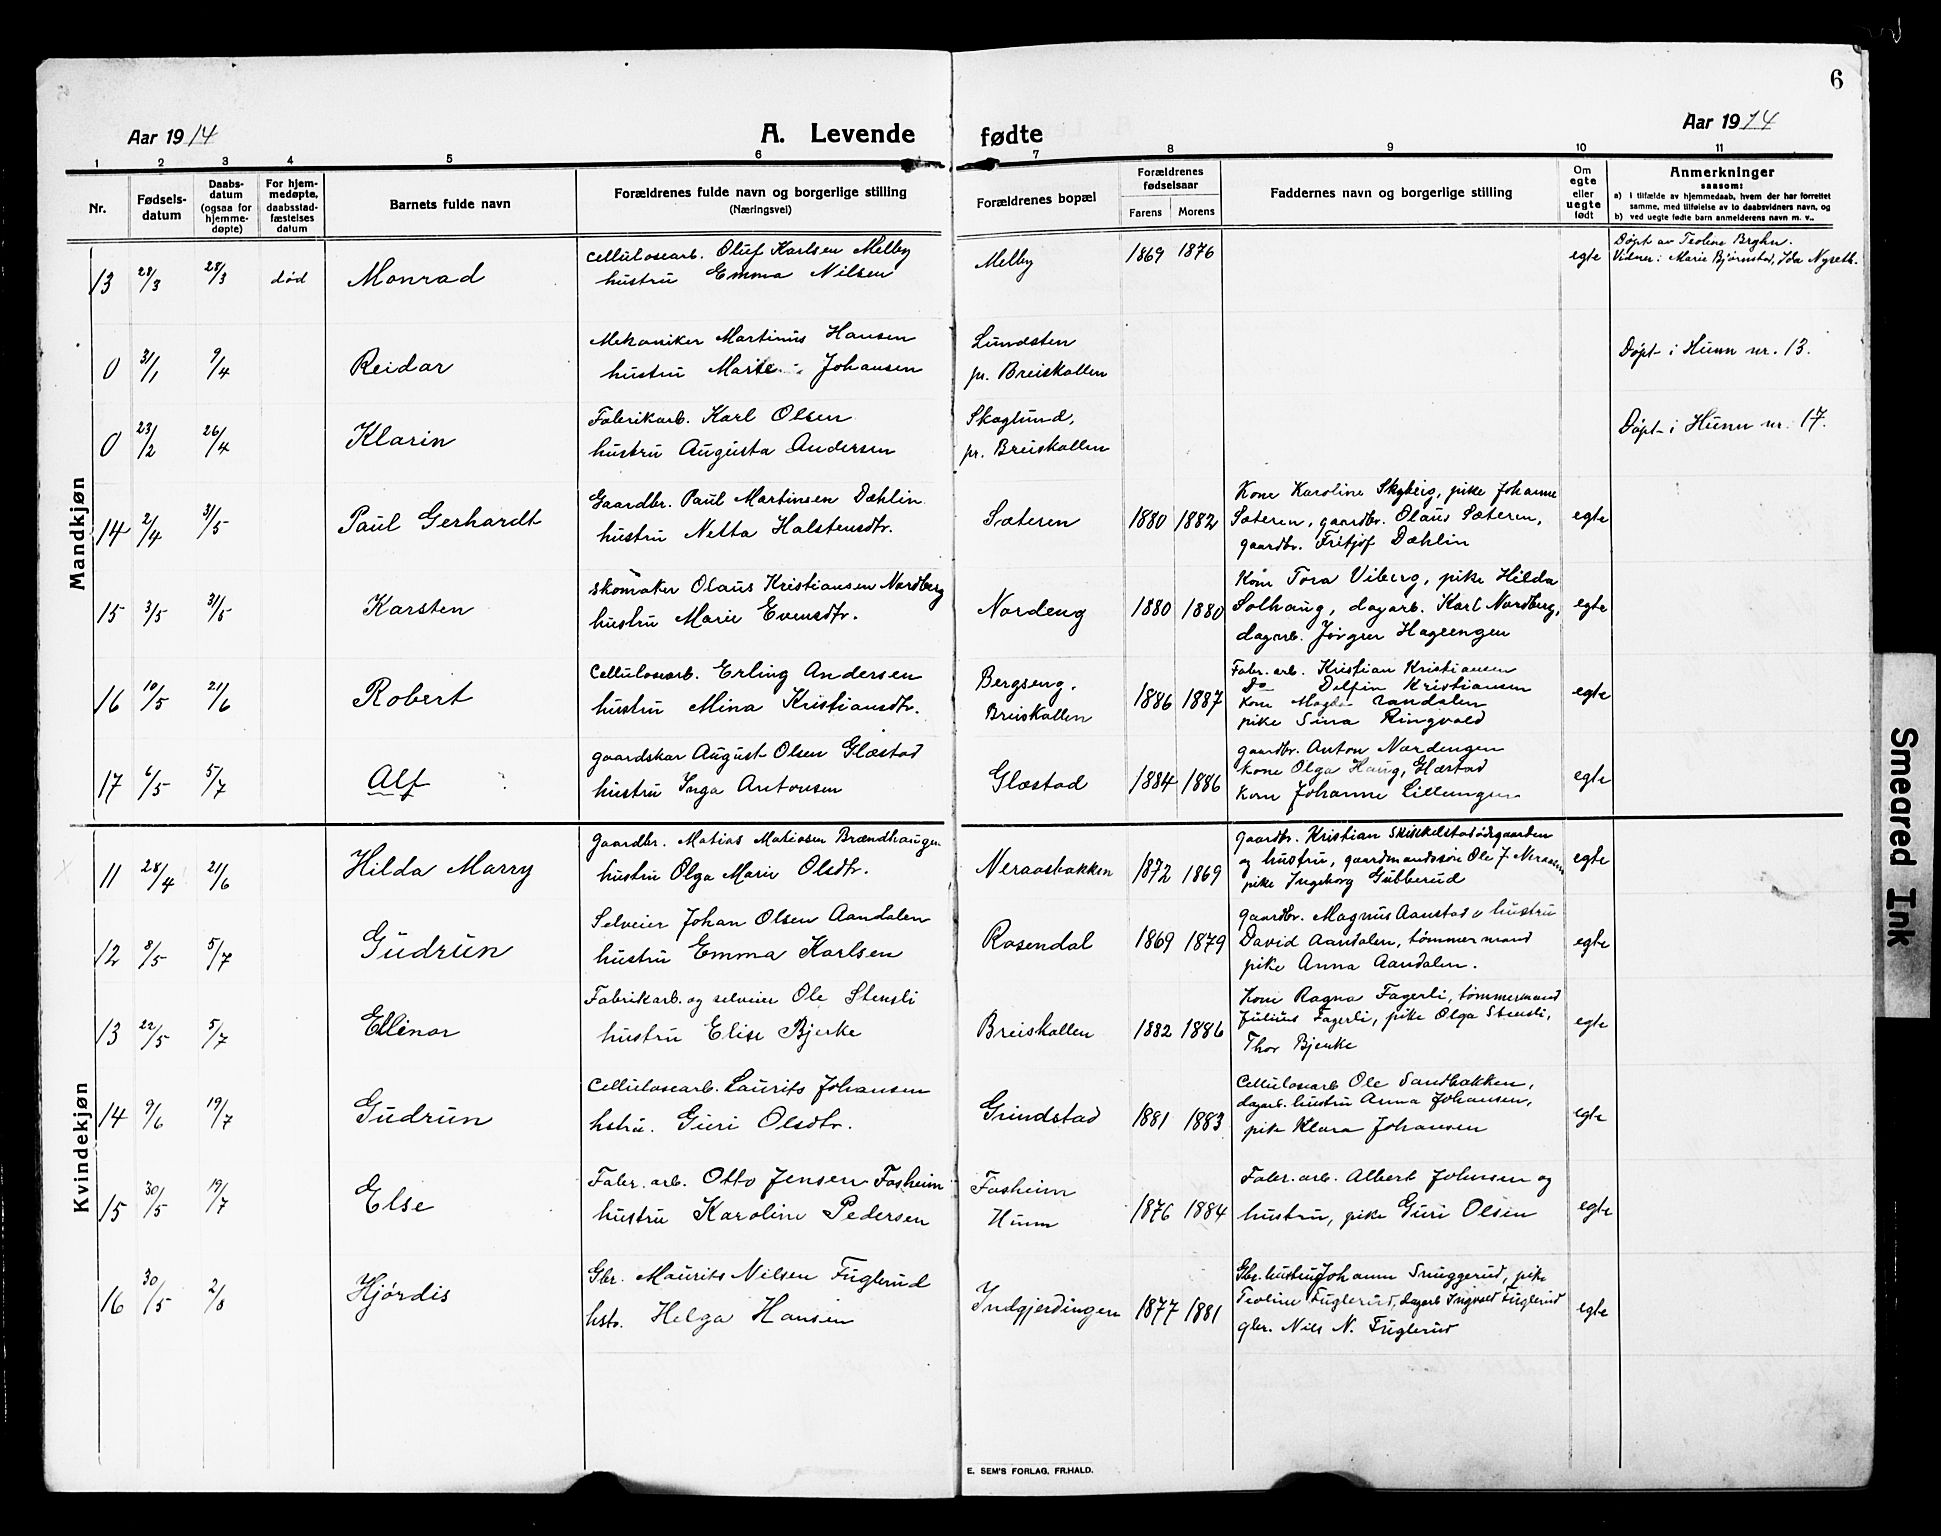 6
Aar 1914
A. Levende fødte
Aar 1914
1 2 3 4 5 6 7 8 9 10 11
Nr.
Fødsels-
datum
Daabs-
datum
(ogsaa for
hjemme-
døpte)
For hjem-
medøpte,
daabsstad-
fæstelses
datum
Barnets fulde navn
Forældrenes fulde navn og borgerlige stilling
(Næringsvei)
Forældrenes bopæl
Forældrenes
fødselsaar
Farens Morens
Faddernes navn og borgerlige stilling
Om
egte
eller
uegte
født
Anmerkninger
saasom:
a) i tilfælde av hjemmedaab, hvem der har forrettet
samme, med tilføielse av to daabsvidners navn, og
b) ved uegte fødte barn anmelderens navn m. v.
Mandkjøn
13 28/3 28/3 død Monrad
Cellulosearb. Oluf Karlsen Melby
hustru Emma Nilsen
Melby 1869 1876 egte
Døpt av Teoline
Vidner: Marie Bjørnstad, Ida
0 31/1 9/4 Reidar
Mekaniker Martinus Hansen
hustru Marie Johansen
Lundsten
pr. Breiskallen
Døpt i Hunn nr. 13.
0 23/2 26/4 Klarin
Fabrikarb. Karl Olsen
hustru Augusta Andersen
Skoglund,
pr. Breiskallen
Døpt i Hunn nr. 17.
14 2/4 3/5 Paul Gerhardt
Gaardbr. Paul Martinsen Dæhlin
hustru Netta Halstensdtr.
Sæteren 1880 1882
Kone Karoline Skyberg, pike Johanne
Sæteren, gaardbr. Olaus Sæteren,
gaardbr. Fritjof Dæhlin
egte
15 3/5 31/5 Karsten
Skomaker Olaus Kristiansen Nordberg
hustru Marie Evensdtr.
Nordeng 1880 1880
Kone Tora Viberg, pike Hilda
Solhaug, dagarb. Karl Nordberg,
dagarb. Jørgen Hageengen
egte
16 10/5 21/6 Robert
Cellulosearb. Erling Andersen
hustru Mina Kristiansdtr.
Bergseng,
Breiskallen
1886 1887
Fabr. arb. Kristian Kristiansen
Do Delfin Kristiansen
Kone Magda Aandalen
pike Sina Ringvold
egte
17 6/5 5/7 Alf
Gaardskar August Olsen Glæstad
hustru Inga Antonsen
Glæstad 1884 1886
Gaardbr. Anton Nordengen
Kone Olga Haug, Glæstad
Kone Johanne Lilleengen
egte
Kvindekjøn
11 28/4 21/6 Hilda Marry
Gaardbr. Matias Matiasen Brændhaugen
hustru Olga Marie Olsdtr.
Neraasbakken 1872 1869
Gaardbr. Kristian Skinkelstadødegaarden
og hustru, gaardmandssøn Ole J. Neraasen
pike Ingeborg Gubberud
egte
12 8/5 5/7 Gudrun
Selveier Johan Olsen Aandalen
hustru Emma Karlsen
Rosendal 1869 1879
Gaardbr. Magnus Aanstad o hustru
David Aandalen, tømmermand
pike Anna Aandalen.
egte
13 22/5 5/7 Ellinor
Fabrikarb. og selveier Ole Stensli
hustru Elise Bjerke
Breiskallen 1882 1886
Kone Ragna Fagerli, tømmermand
Julius Fagerli, pike Olga Stensli,
Thor Bjerke
egte
14 9/6 19/7 Gudrun
Cellulosearb. Laurits Johansen
hstru. Guri Olsdtr.
Grindstad 1881 1883
Cellulosearb Ole Sandbakken,
dagarb. hustru Anna Johansen,
pike Klara Johansen
egte
15 30/5 19/7 Else
Fabr. arb. Otto Jensen Fosheim
hustru Karoline Pedersen
Fosheim
Hunn
1876 1884
Fabr. arb. Albert Johnsen og
hustru, pike Guri Olsen
egte
16 30/5 2/8 Hjørdis
Gbr. Maurits Nilsen Fuglerud
hstr. Helga Hansen
Indgjerdingen 1877 1881
Gbr. hustru Johanne Snuggerud, pike
Teoline Fuglerud, dagarb Ingvald Fuglerud
gbr. Nils N. Fuglerud
egte
E. SEM'S FORLAG, FR.HALD.
Smeared Ink